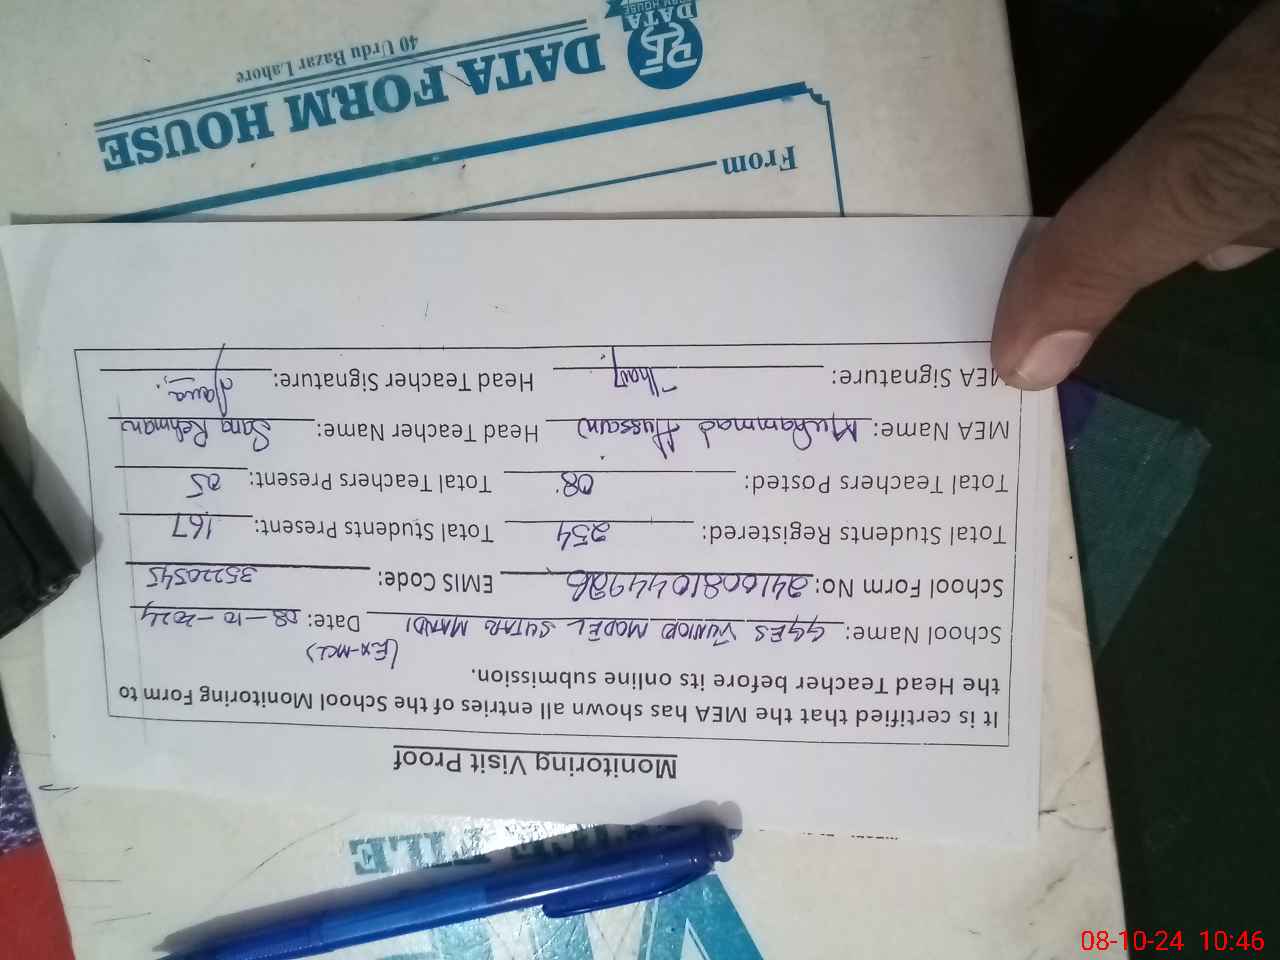 FILE
Monitoring Visit Proof
It is certified that the MEA has shown all entries of the School Monitoring Form to
the Head Teacher before its online submission.
(EX-MCL)
School Name: GGES JUNIOR MODEL SUTAR MANDI Date: 08-10-2024
School Form No: 241008104492B EMIS Code: 35220545
Total Students Registered: 254 Total Students Present: 167
Total Teachers Posted: 08 Total Teachers Present: 05
MEA Name: Muhammad Hussain Head Teacher Name: Sana Rehman
MEA Signature: Head Teacher Signature:
From
DATA FORM HOUSE
40 Urdu Bazar Lahore
DATA
08-10-24 10:46